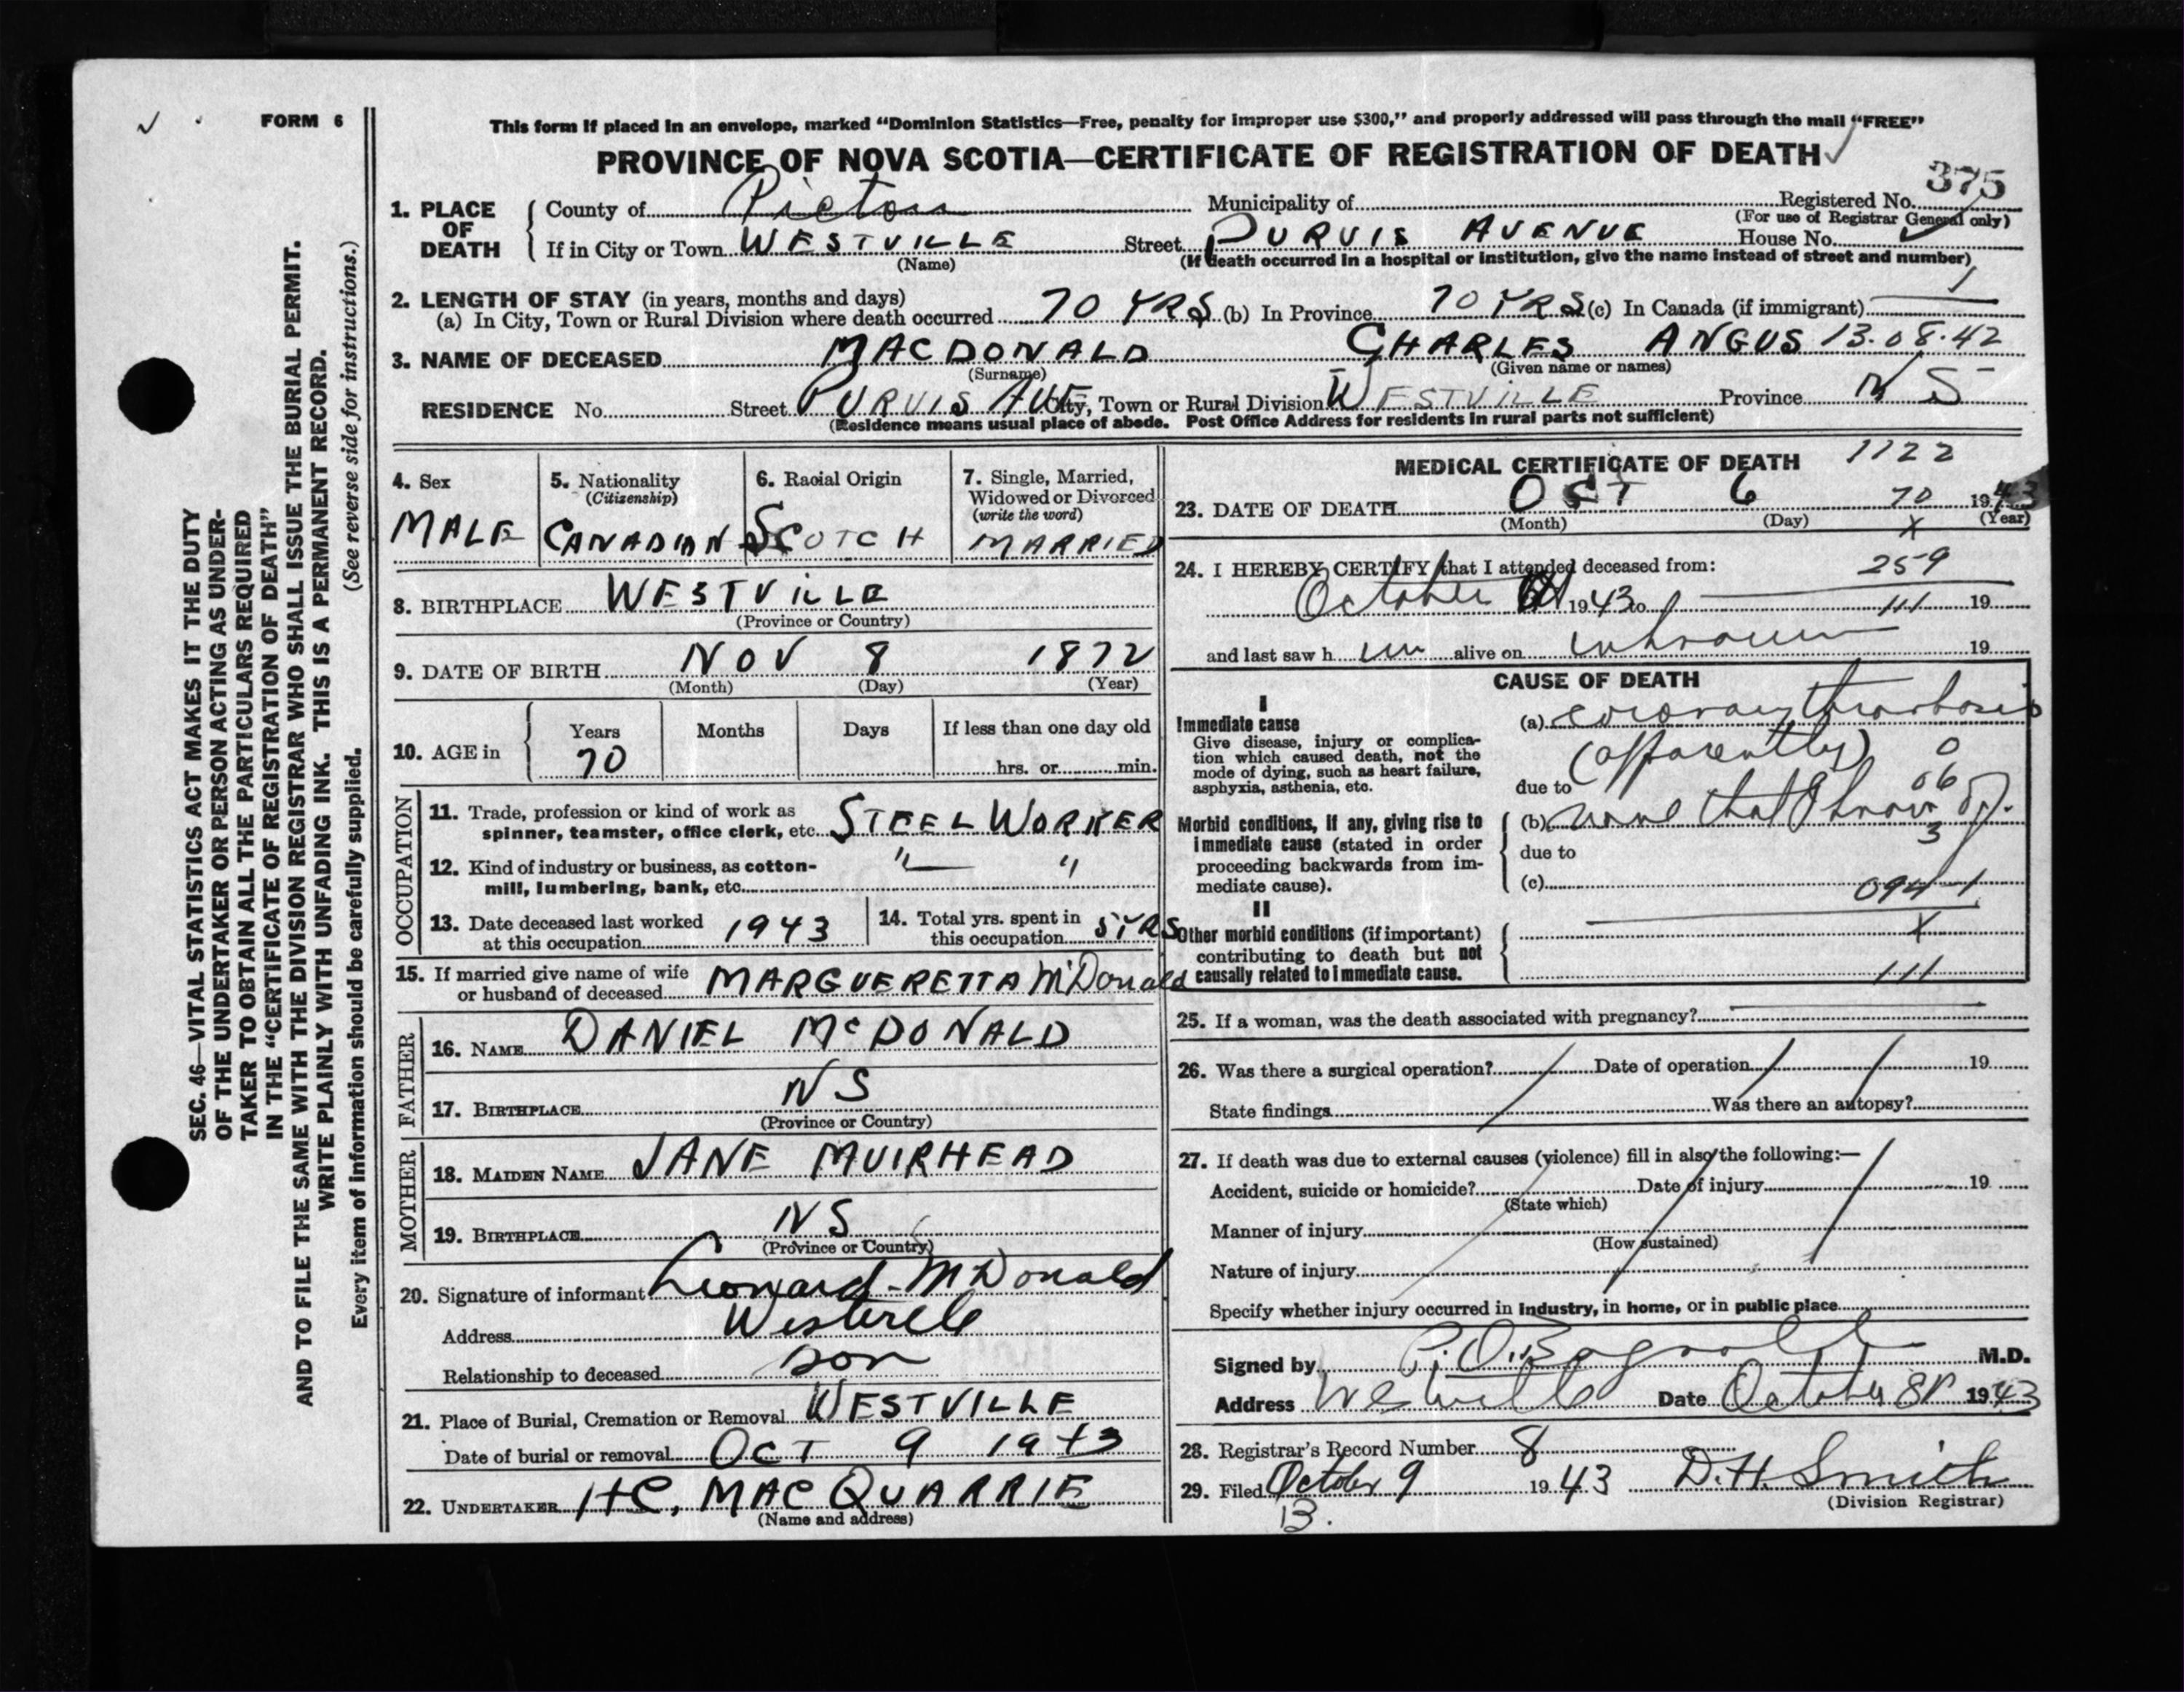 FORM 6
This form if placed in an envelope, marked “Dominion Statistics—Free, penalty for improper use $300,” and properly addressed will pass through the mail “FREE”
PROVINCE OF NOVA SCOTIA—CERTIFICATE OF REGISTRATION OF DEATH
375
1. PLACE OF DEATH
County of Pictou Municipality of Registered No.
(For use of Registrar General only)
If in City or Town WESTVILLE Street PURVIS AVENUE House No.
(Name) (If death occurred in a hospital or institution, give the name instead of street and number)
2. LENGTH OF STAY (in years, months and days)
(a) In City, Town or Rural Division where death occurred 70 YRS (b) In Province 70 YRS (c) In Canada (if immigrant)
3. NAME OF DECEASED MACDONALD CHARLES ANGUS 13.08.42
(Surname) (Given name or names)
RESIDENCE No. Street PURVIS AVE City, Town or Rural Division WESTVILLE Province N S
(Residence means usual place of abode. Post Office Address for residents in rural parts not sufficient)
4. Sex
MALE
5. Nationality
(Citizenship)
CANADIAN
6. Racial Origin
SCOTCH
7. Single, Married,
Widowed or Divorced
(write the word)
MARRIED
8. BIRTHPLACE WESTVILLE
(Province or Country)
9. DATE OF BIRTH NOV 8 1872
(Month) (Day) (Year)
10. AGE in
Years Months Days If less than one day old
70 hrs. or min.
OCCUPATION
11. Trade, profession or kind of work as
spinner, teamster, office clerk, etc. STEEL WORKER
12. Kind of industry or business, as cotton-
mill, lumbering, bank, etc. " "
13. Date deceased last worked
at this occupation 1943
14. Total yrs. spent in
this occupation 5 YRS
15. If married give name of wife
or husband of deceased MARGUERETTA McDonald
FATHER
16. NAME DANIEL McDONALD
17. BIRTHPLACE NS
(Province or Country)
MOTHER
18. MAIDEN NAME JANE MUIRHEAD
19. BIRTHPLACE NS
(Province or Country)
20. Signature of informant Leonard McDonald
Address Westville
Relationship to deceased son
21. Place of Burial, Cremation or Removal WESTVILLE
Date of burial or removal OCT 9 1943
22. UNDERTAKER HC, MACQUARRIE
(Name and address)
MEDICAL CERTIFICATE OF DEATH 1122
23. DATE OF DEATH OCT 6 70 1943
(Month) (Day) X (Year)
24. I HEREBY CERTIFY that I attended deceased from: 259
October 1943 to 111 19
and last saw h im alive on unknown 19
CAUSE OF DEATH
I
Immediate cause
Give disease, injury or complica-
tion which caused death, not the
mode of dying, such as heart failure,
asphyxia, asthenia, etc.
(a) coronary thrombosis
(apparently) 0
due to 06
Morbid conditions, if any, giving rise to
immediate cause (stated in order
proceeding backwards from im-
mediate cause).
(b) none that I know of.
3
due to
(c) 094 1
II
Other morbid conditions (if important)
contributing to death but not
causally related to immediate cause.
X
111
25. If a woman, was the death associated with pregnancy?
26. Was there a surgical operation? Date of operation 19
State findings Was there an autopsy?
27. If death was due to external causes (violence) fill in also the following:—
Accident, suicide or homicide? Date of injury 19
(State which)
Manner of injury
(How sustained)
Nature of injury
Specify whether injury occurred in industry, in home, or in public place
Signed by M.D.
Address Westville Date October 8 1943
28. Registrar's Record Number 8
29. Filed October 9 1943 D.H. Smith
(Division Registrar)
13.
SEC. 46—VITAL STATISTICS ACT MAKES IT THE DUTY
OF THE UNDERTAKER OR PERSON ACTING AS UNDER-
TAKER TO OBTAIN ALL THE PARTICULARS REQUIRED
IN THE “CERTIFICATE OF REGISTRATION OF DEATH”
AND TO FILE THE SAME WITH THE DIVISION REGISTRAR WHO SHALL ISSUE THE BURIAL PERMIT.
WRITE PLAINLY WITH UNFADING INK. THIS IS A PERMANENT RECORD.
(See reverse side for instructions.)
Every item of information should be carefully supplied.